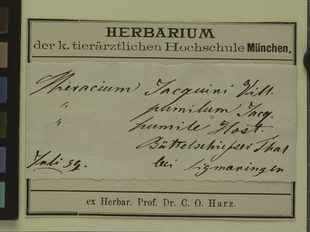 HERBARIUM
der k. tierärztlichen Hochschule München.
Hieracium Jacquini Vill.
" pumilum Jacq.
" pumile Host.
Büttelschiesser Thal
Juli 59. bei Sigmaringen
ex Herbar. Prof. Dr. C. O. Harz.